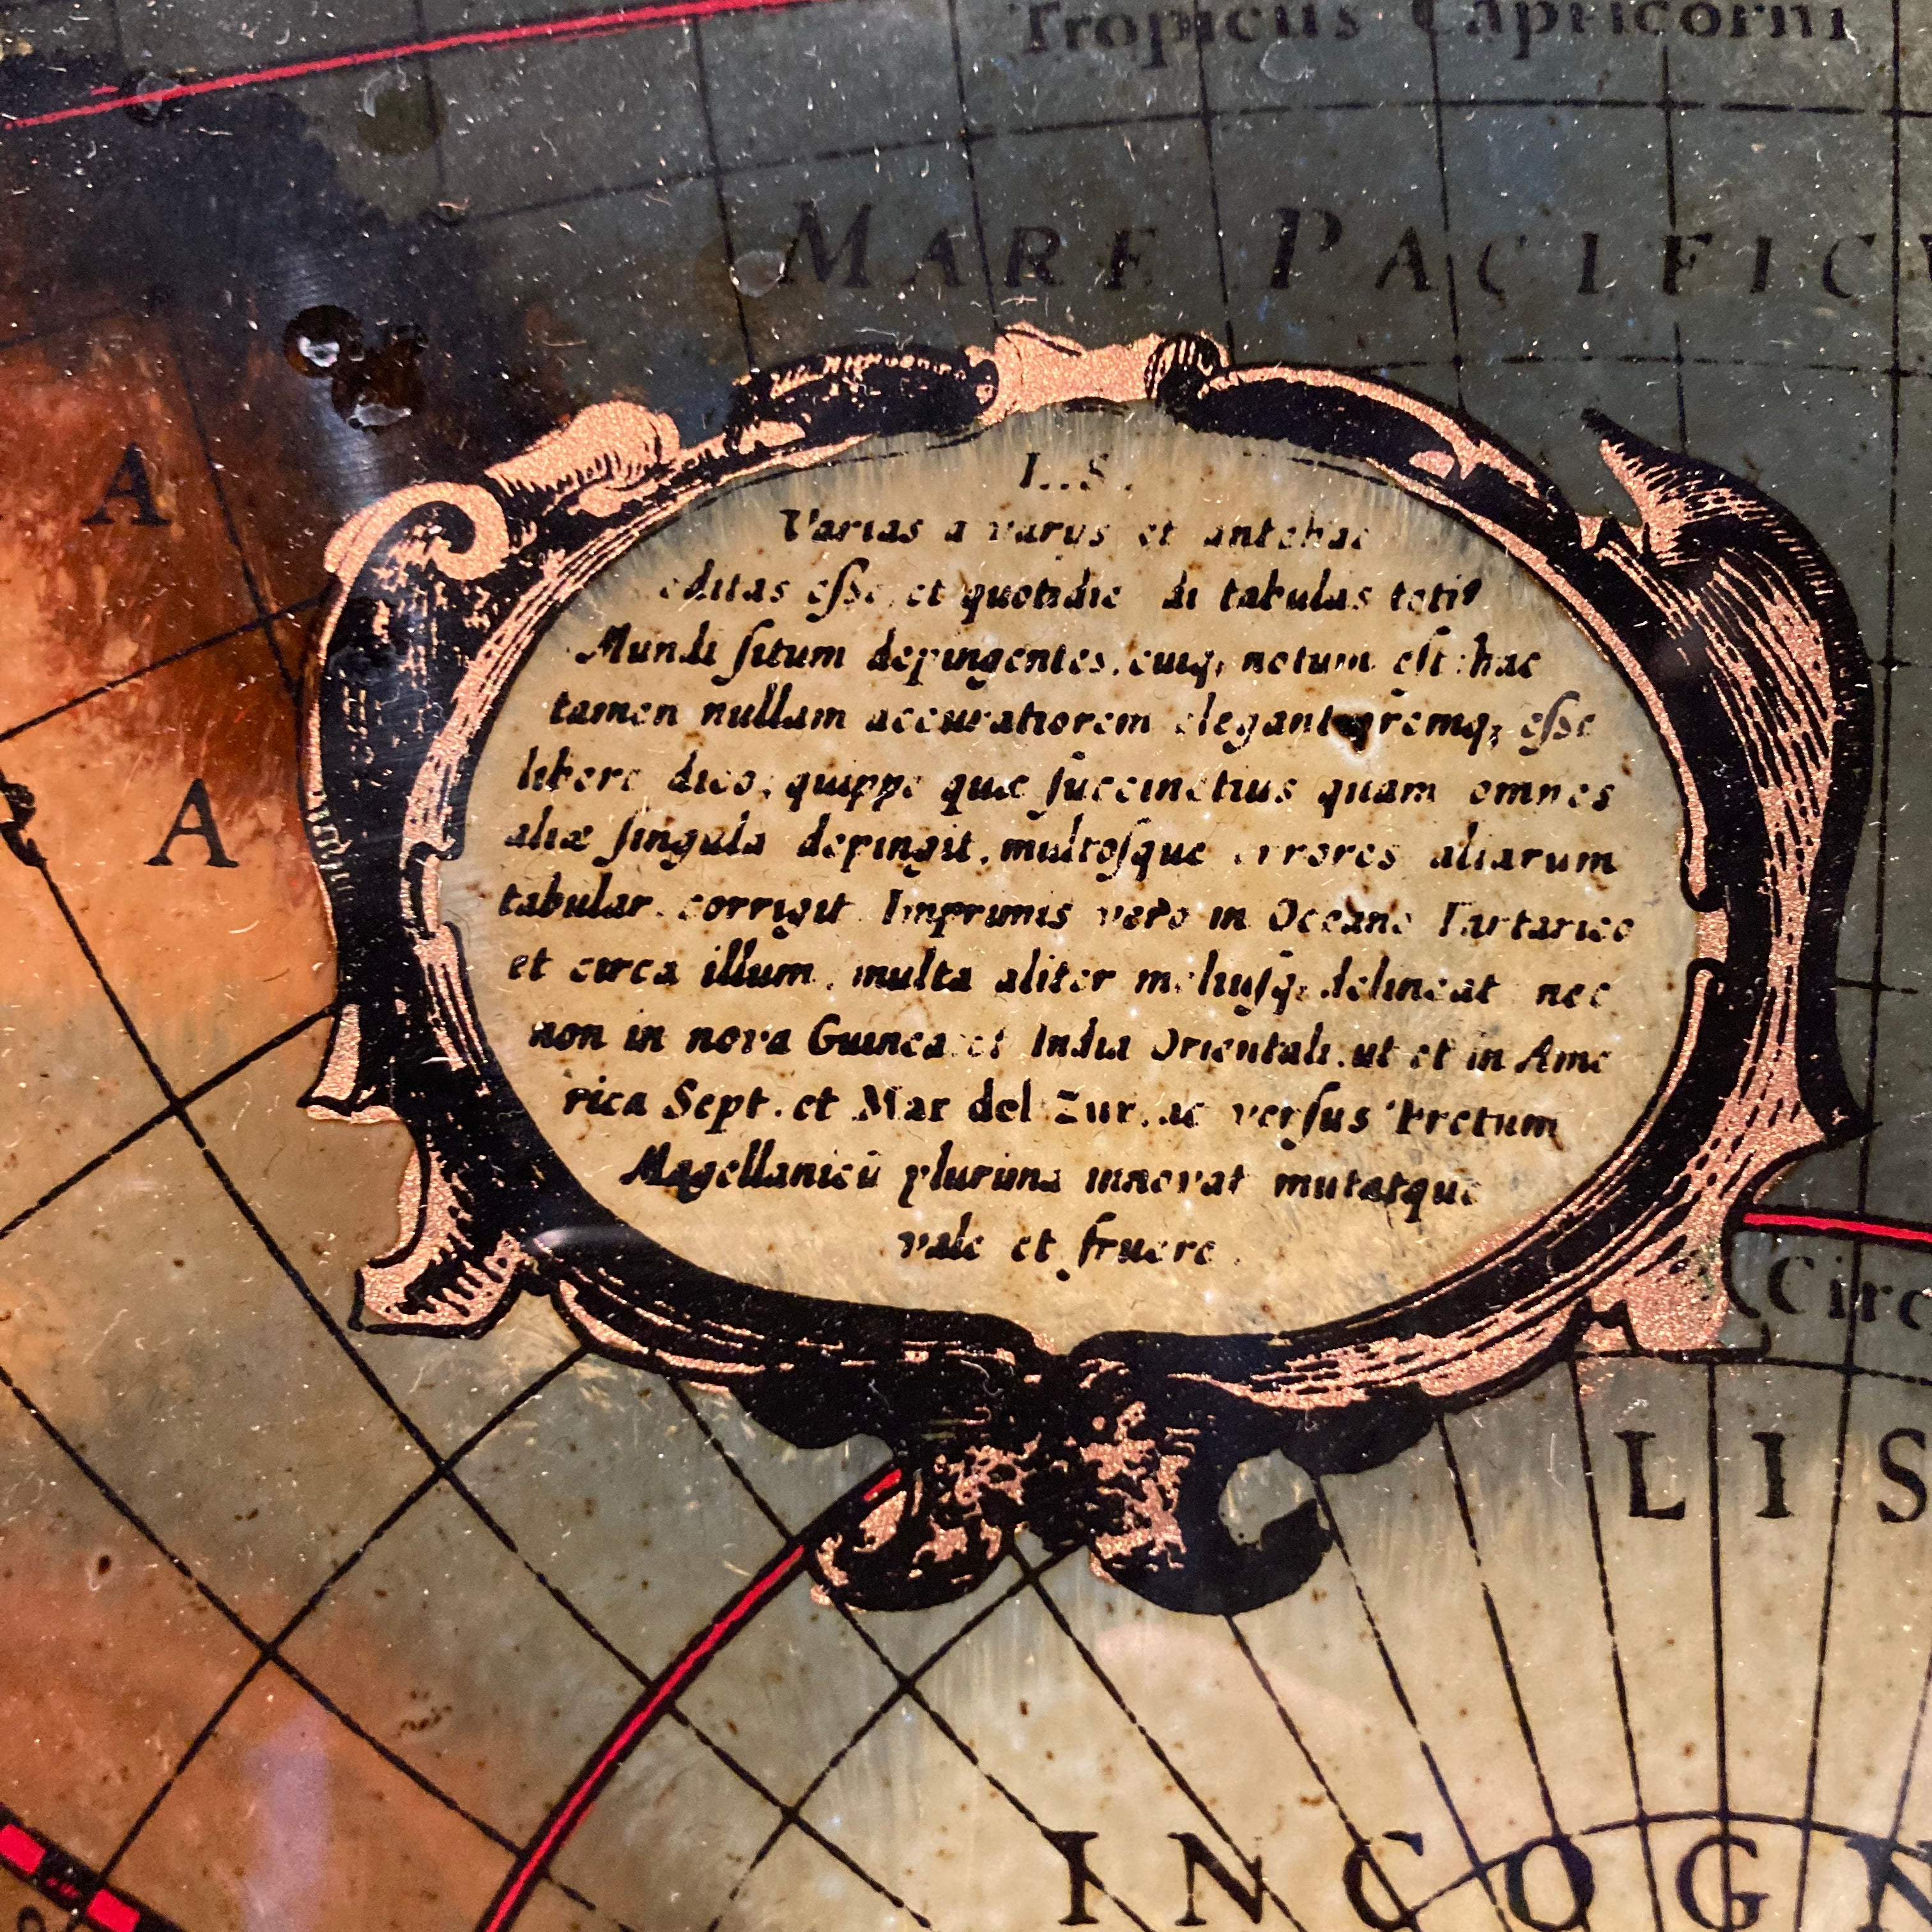 Tropicus Capricorni
MARE PACIFIC
A
A
L..S.
Varias a varijs et antehac
editas eſse, et quotidie di tabulas toti9
Mundi ſitum depingentes, cuiq; notum eſt: hac
tamen nullam accuratiorem elegantioremq; eſse
libere dico, quippe quæ ſuccinctius quam omnes
aliæ ſingula depingit, multoſque errores aliarum
tabular. corrigit Imprimis vero in Oceano Tartarico
et circa illum, multa aliter meliuſq; delineat nec
non in nova Guinea et India Orientali, ut et in Ame
rica Sept. et Mar del Zur, ac verſus Fretum
Magellanicū plurima innovat mutatque
vale et fruere.
Circ
LIS
INCOGN